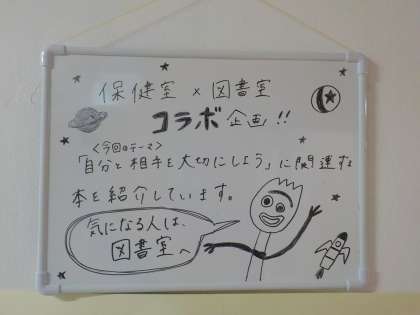 保健室 × 図書室
コラボ企画!!
<今回のテーマ>
「自分と相手を大切にしよう」に関連する
本を紹介しています。
気になる人は、
図書室へ